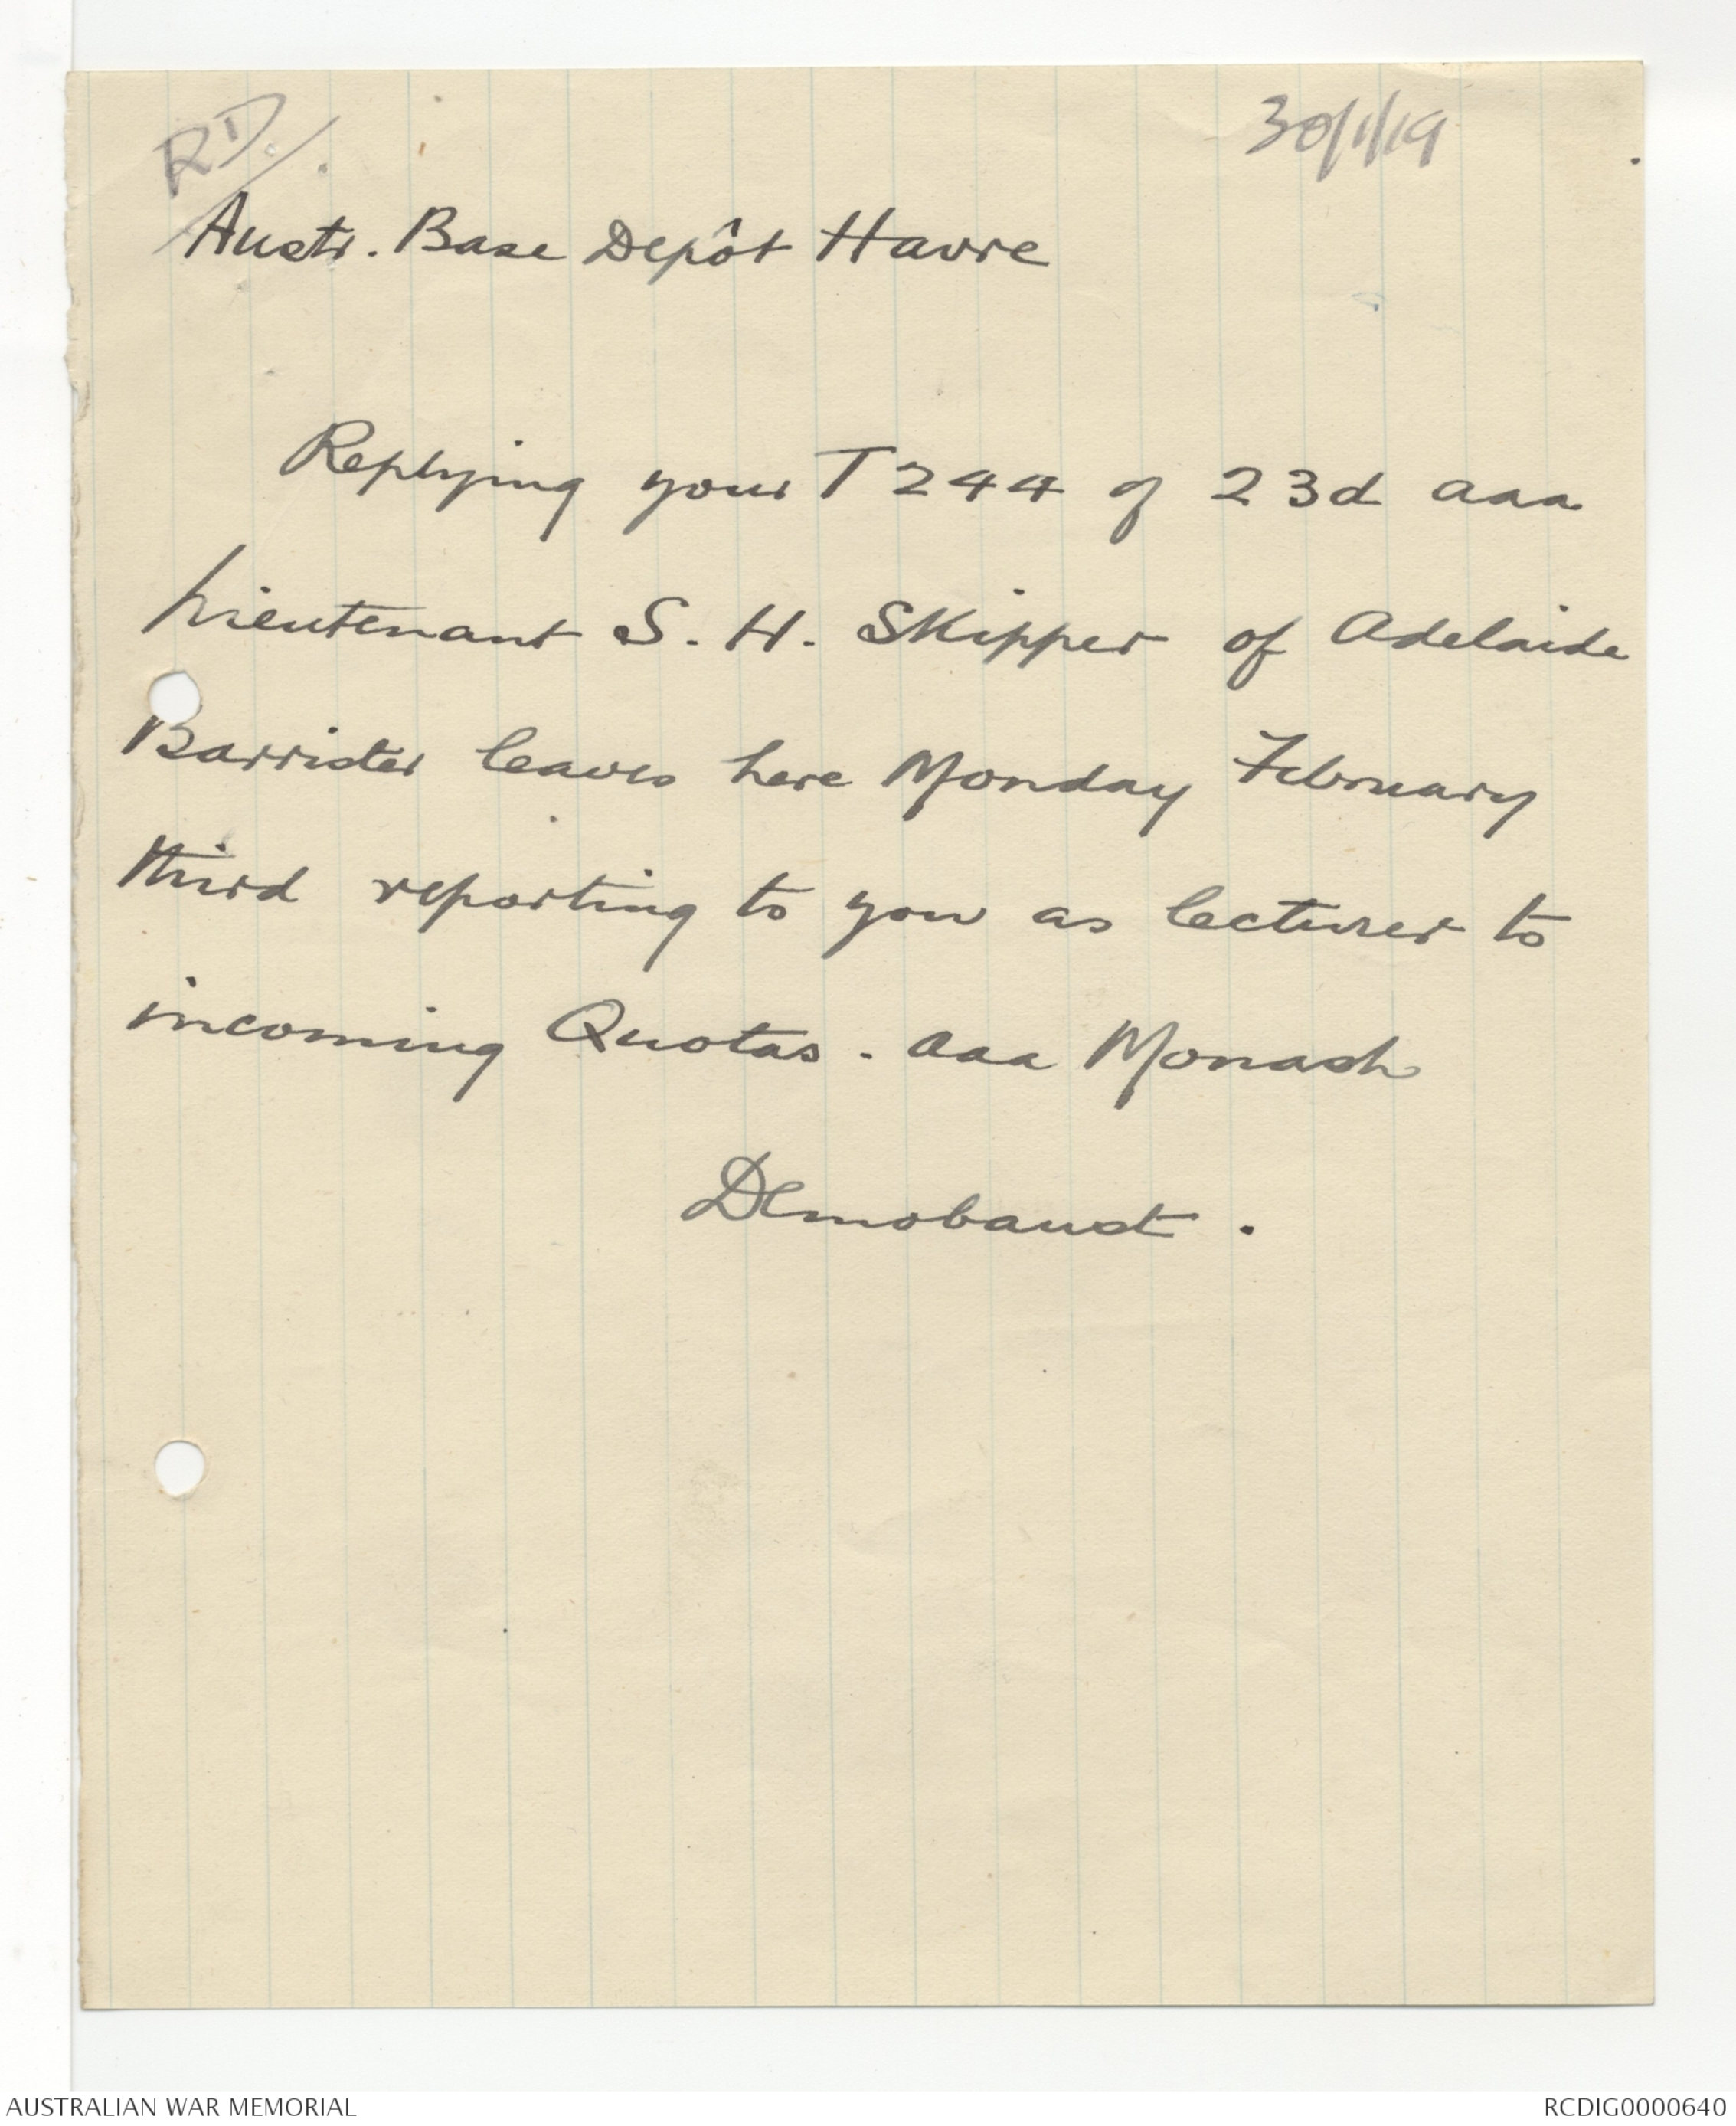 RD/.
30/1/19
Austr. Base Depôt Havre
Replying your T 244 of 23d aaa
Lieutenant S. H. Skipper of Adelaide
Barrister leaves here Monday February
third reporting to you as lecturer to
incoming Quotas. aaa Monash
Demobaust.
AUSTRALIAN WAR MEMORIAL
RCDIG0000640